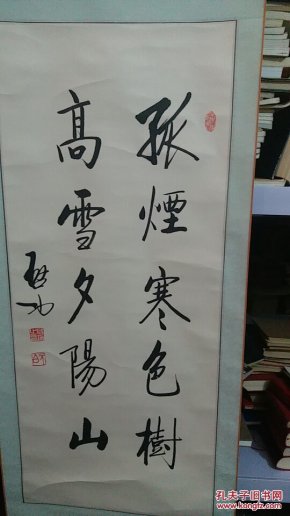 孤煙寒色樹
高雪夕陽山
啟功
孔夫子旧书网